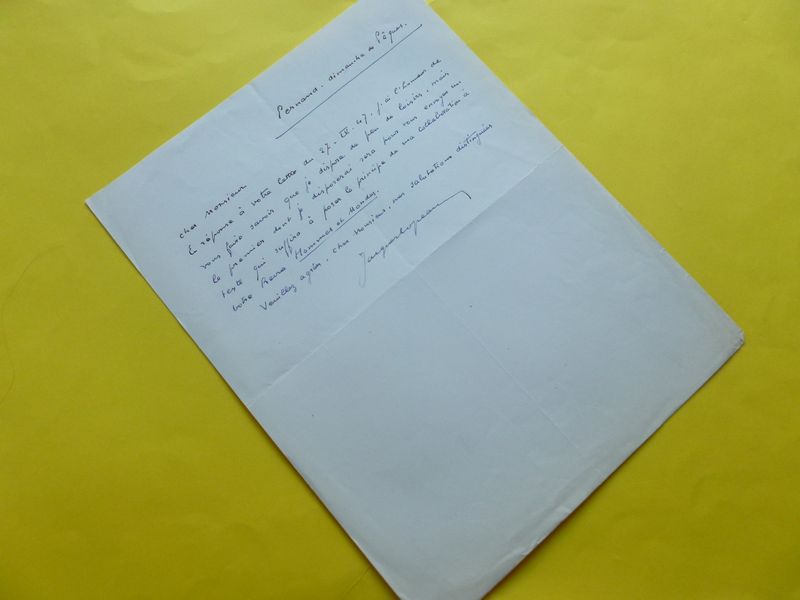 Pernand. dimanche de Pâques.
cher Monsieur
En réponse à votre lettre du 27. III. 47. j'ai l'honneur de
vous faire savoir que je dispose de peu de loisirs. mais
le premier dont je disposerai sera pour vous envoyer un
texte qui suffira à poser le principe de ma collaboration à
votre Revue Hommes et Mondes.
Veuillez agréer. cher Monsieur. mes salutations distinguées
Jacques Copeau